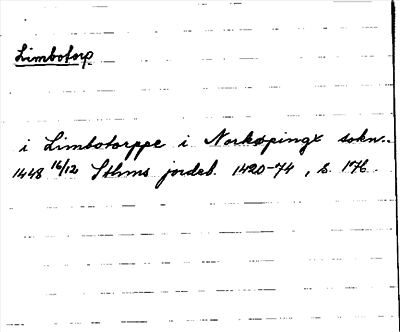 Limbotorp
i Limbotorppe i Norkøpingx sokn..
1448 16/12 Sthms jordeb. 1420-74, s. 176.